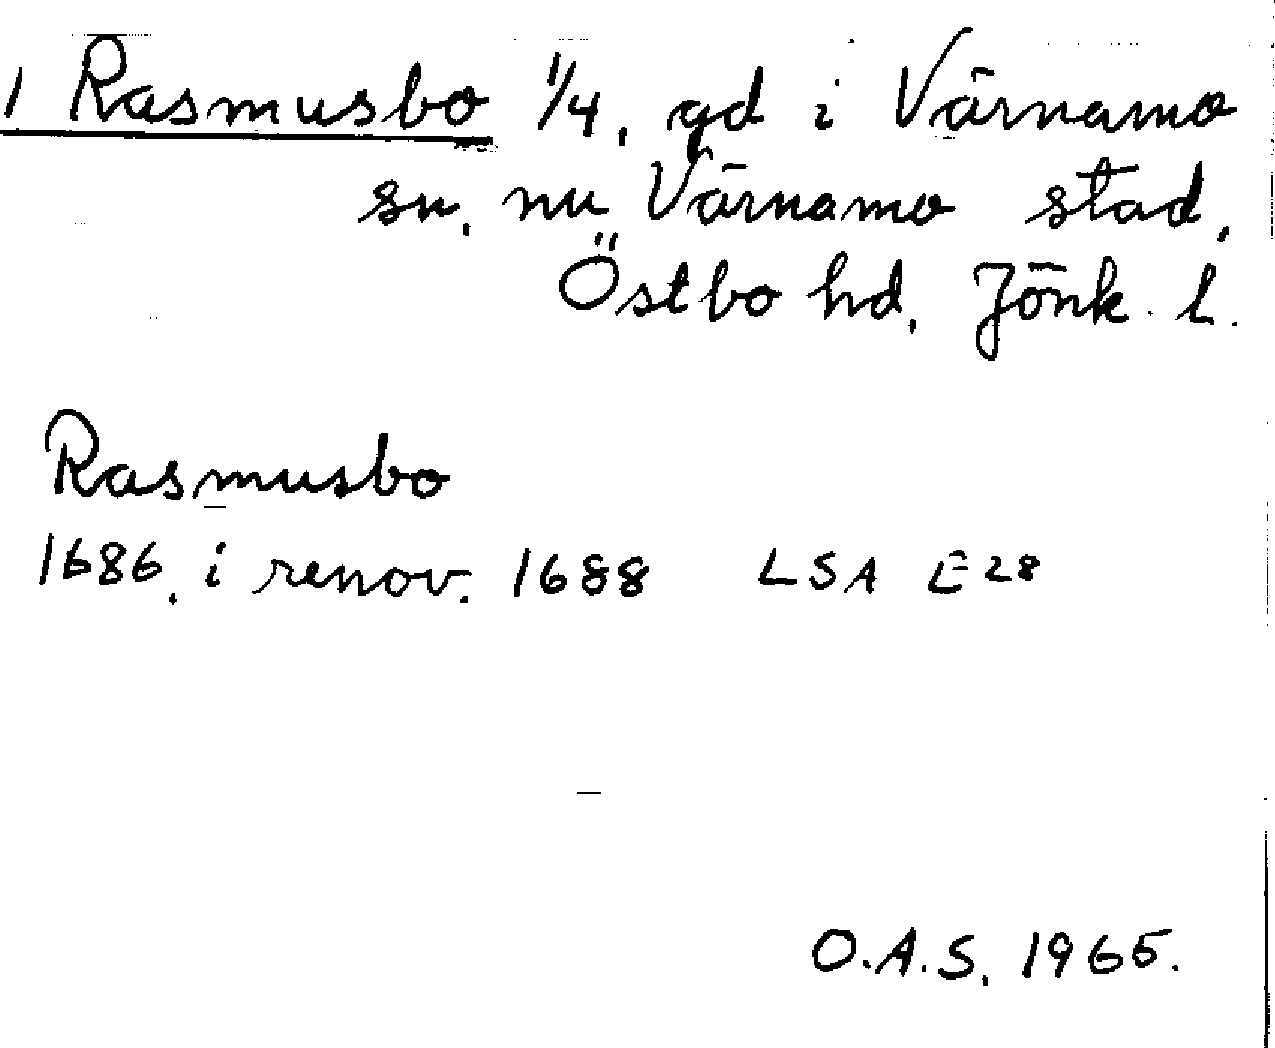 1 Rasmusbo 1/4, gd i Värnamo
sn, nu Värnamo stad,
Östbo hd, Jönk. l.
Rasmusbo
1686, i renov. 1688 LSA E28
O.A.S, 1965.